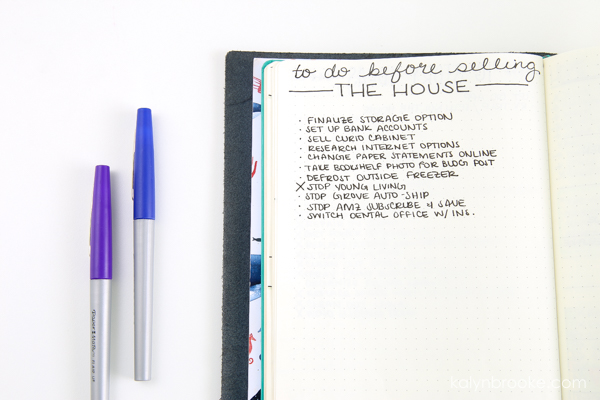 to do before selling
THE HOUSE
· FINALIZE STORAGE OPTION
· SET UP BANK ACCOUNTS
· SELL CURIO CABINET
· RESEARCH INTERNET OPTIONS
· CHANGE PAPER STATEMENTS ONLINE
· TAKE BOOKSHELF PHOTO FOR BLOG POST
· DEFROST OUTSIDE FREEZER
X STOP YOUNG LIVING
· STOP GROVE AUTO-SHIP
· STOP AMZ SUBSCRIBE & SAVE
· SWITCH DENTAL OFFICE W/ INS.
kalynbrooke.com